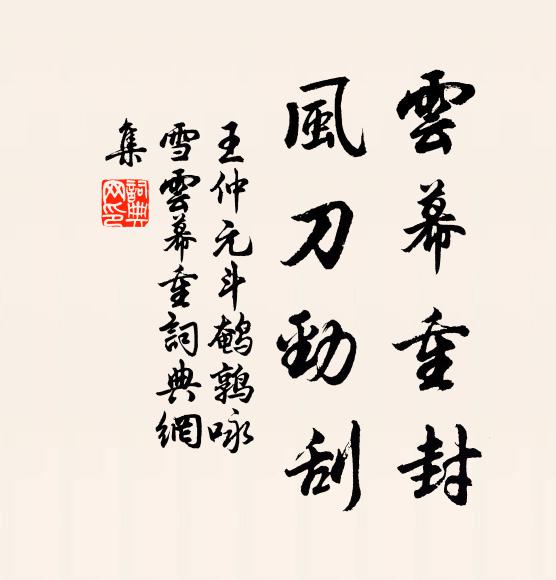 雲幕重封
風刀勁刮
王仲元斗鹌鹑咏
雪雲幕重詞典網
集
詞典
网印